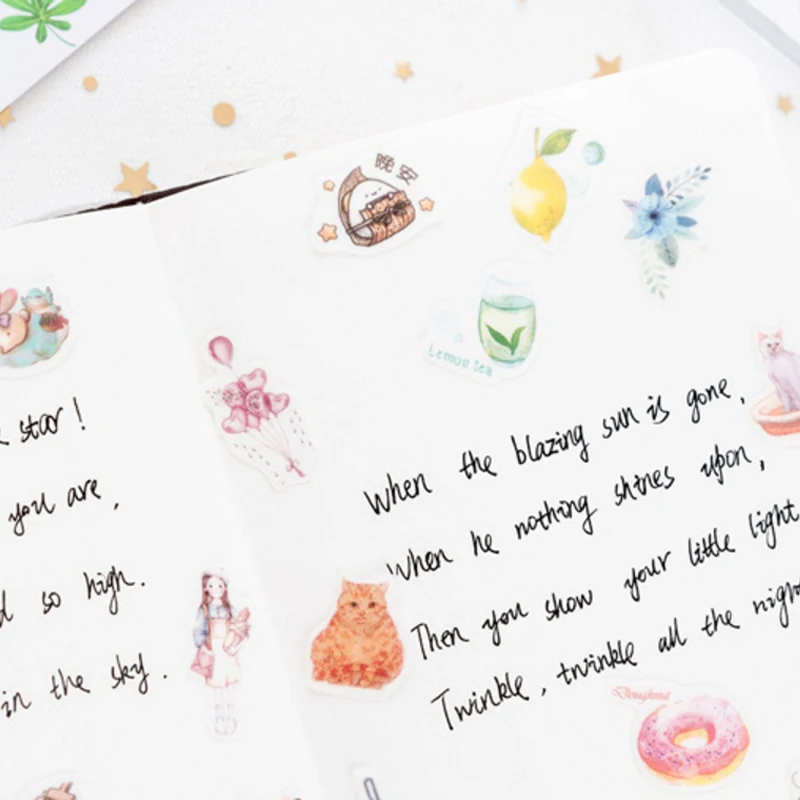 star!
you are,
so high.
in the sky.
晚安
Lemon tea
When the blazing sun is gone,
When he nothing shines upon,
Then you show your little light
Twinkle, twinkle all the night
Doughnut